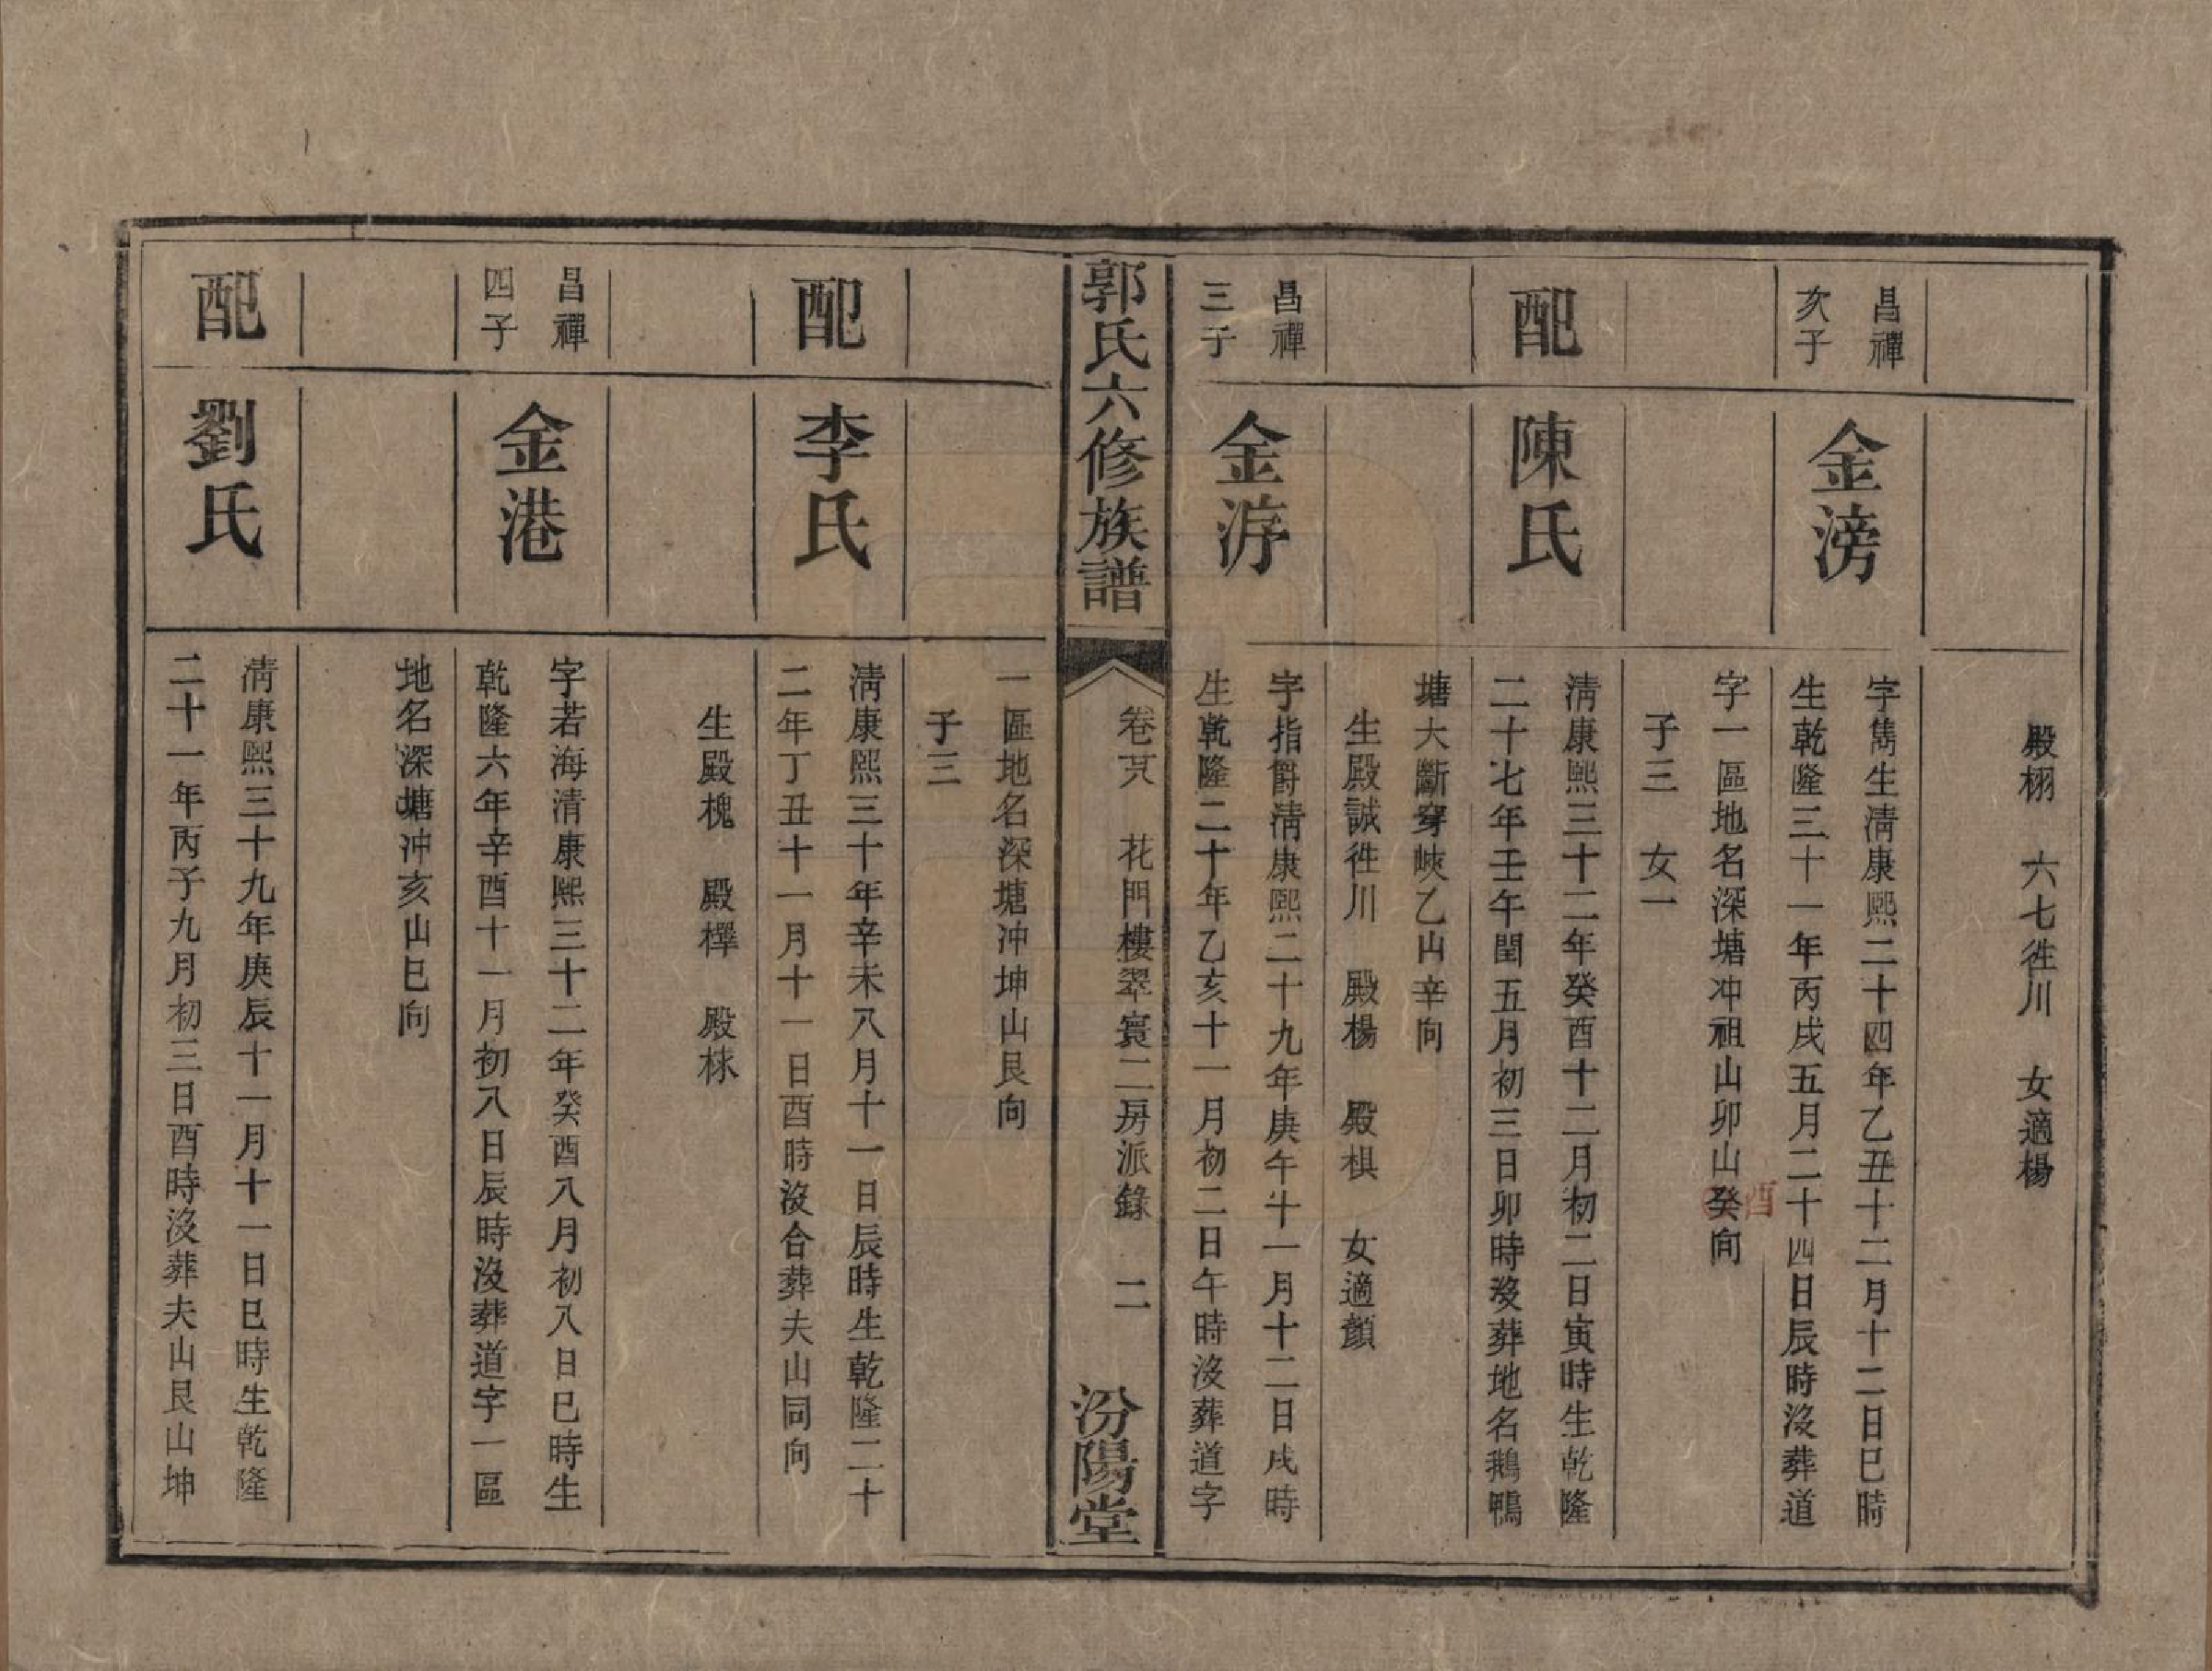 殿栩　六七徃川　女適楊
昌禪
亥子
金滂
字雋生淸康熙二十四年乙丑十二月十二日巳時
生乾隆三十一年丙戌五月二十四日辰時沒葬道
字一區地名深塘冲祖山卯山癸向
酉
子三　女一
配
陳氏
淸康熙三十二年癸酉十二月初二日寅時生乾隆
二十七年壬午閏五月初三日卯時歿葬地名鵝鴨
塘大斷穿峽乙山辛向
生殿誠徃川　殿楊　殿棋　女適顏
昌禪
三子
金㳺
字指爵淸康熙二十九年庚午十一月十二日戌時
生乾隆二十年乙亥十一月初二日午時沒葬道字
郭氏六修族譜
卷　花門樓翠寰二房派錄　二
汾陽堂
一區地名深塘冲坤山艮向
子三
配
李氏
淸康熙三十年辛未八月十一日辰時生乾隆二十
二年丁丑十一月十一日酉時沒合葬夫山同向
生殿槐　殿檡　殿栐
昌禪
四子
金港
字若海清康熙三十二年癸酉八月初八日巳時生
乾隆六年辛酉十一月初八日辰時沒葬道字一區
地名深塘冲亥山巳向
配
劉氏
淸康熙三十九年庚辰十一月十一日巳時生乾隆
二十一年丙子九月初三日酉時沒葬夫山艮山坤